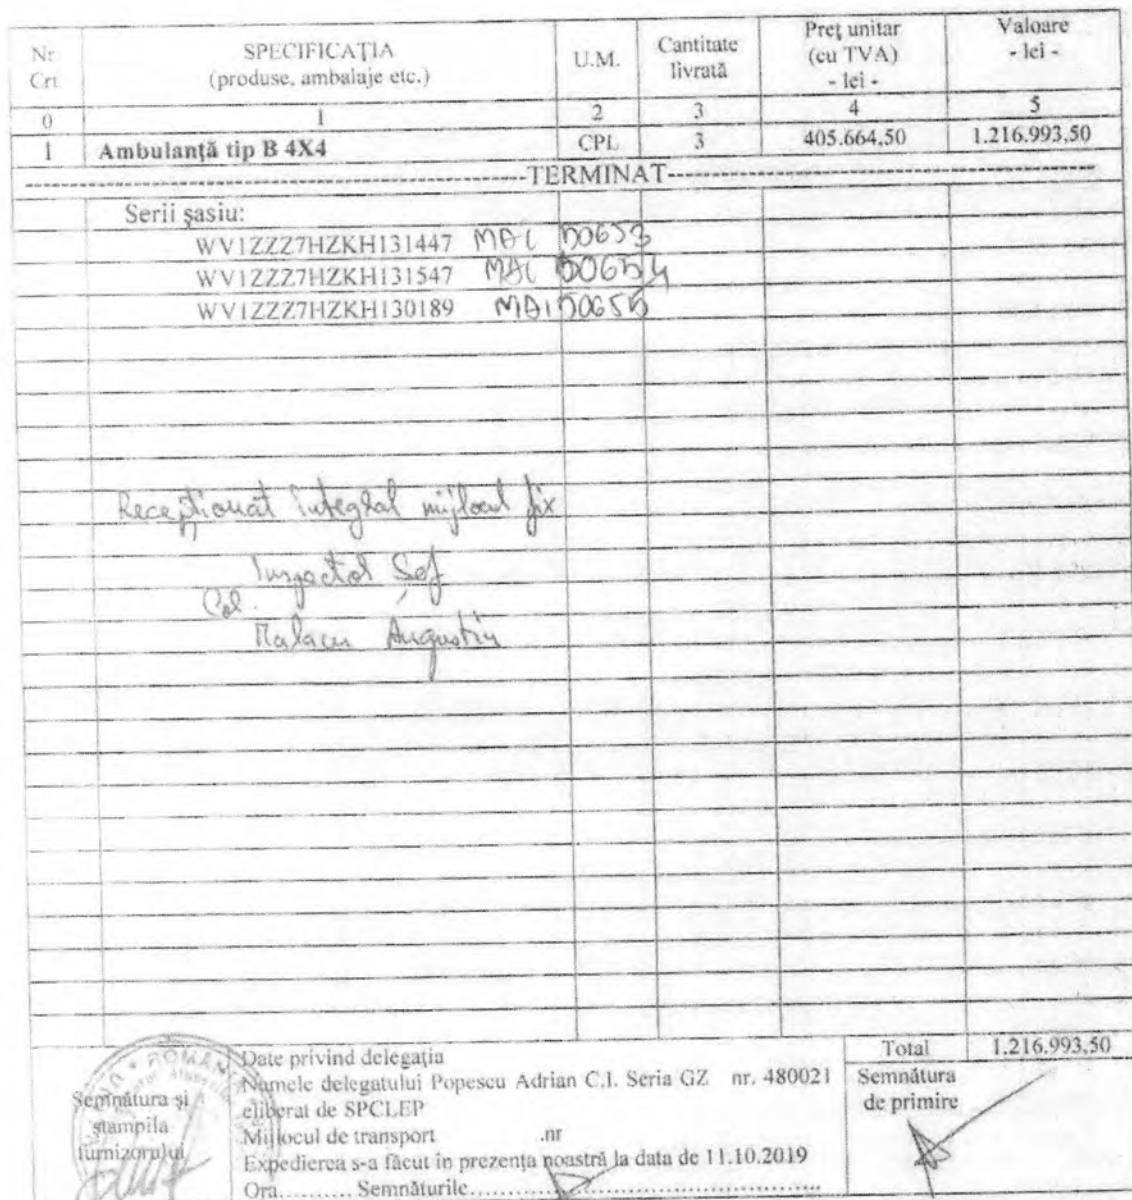 Nr. Crt. SPECIFICAȚIA (produse, ambalaje etc.) U.M. Cantitate livrată Preț unitar (cu TVA) - lei - Valoare - lei -
0 1 2 3 4 5
1 Ambulanță tip B 4X4 CPL 3 405.664,50 1.216.993,50
TERMINAT
Serii șasiu:
WV1ZZZ7HZKH131447 MAI 50653
WV1ZZZ7HZKH131547 MAI 50654
WV1ZZZ7HZKH130189 MAI 50655
Recepționat integral mijlocul fix
Inspector Șef
Col.
Malacu Augustin
Total 1.216.993,50
Semnătura și
ștampila
furnizorului
Date privind delegația
Numele delegatului Popescu Adrian C.I. Seria GZ nr. 480021
eliberat de SPCLEP
Mijlocul de transport .nr
Expedierea s-a făcut în prezența noastră la data de 11.10.2019
Ora.......... Semnăturile..........
Semnătura
de primire